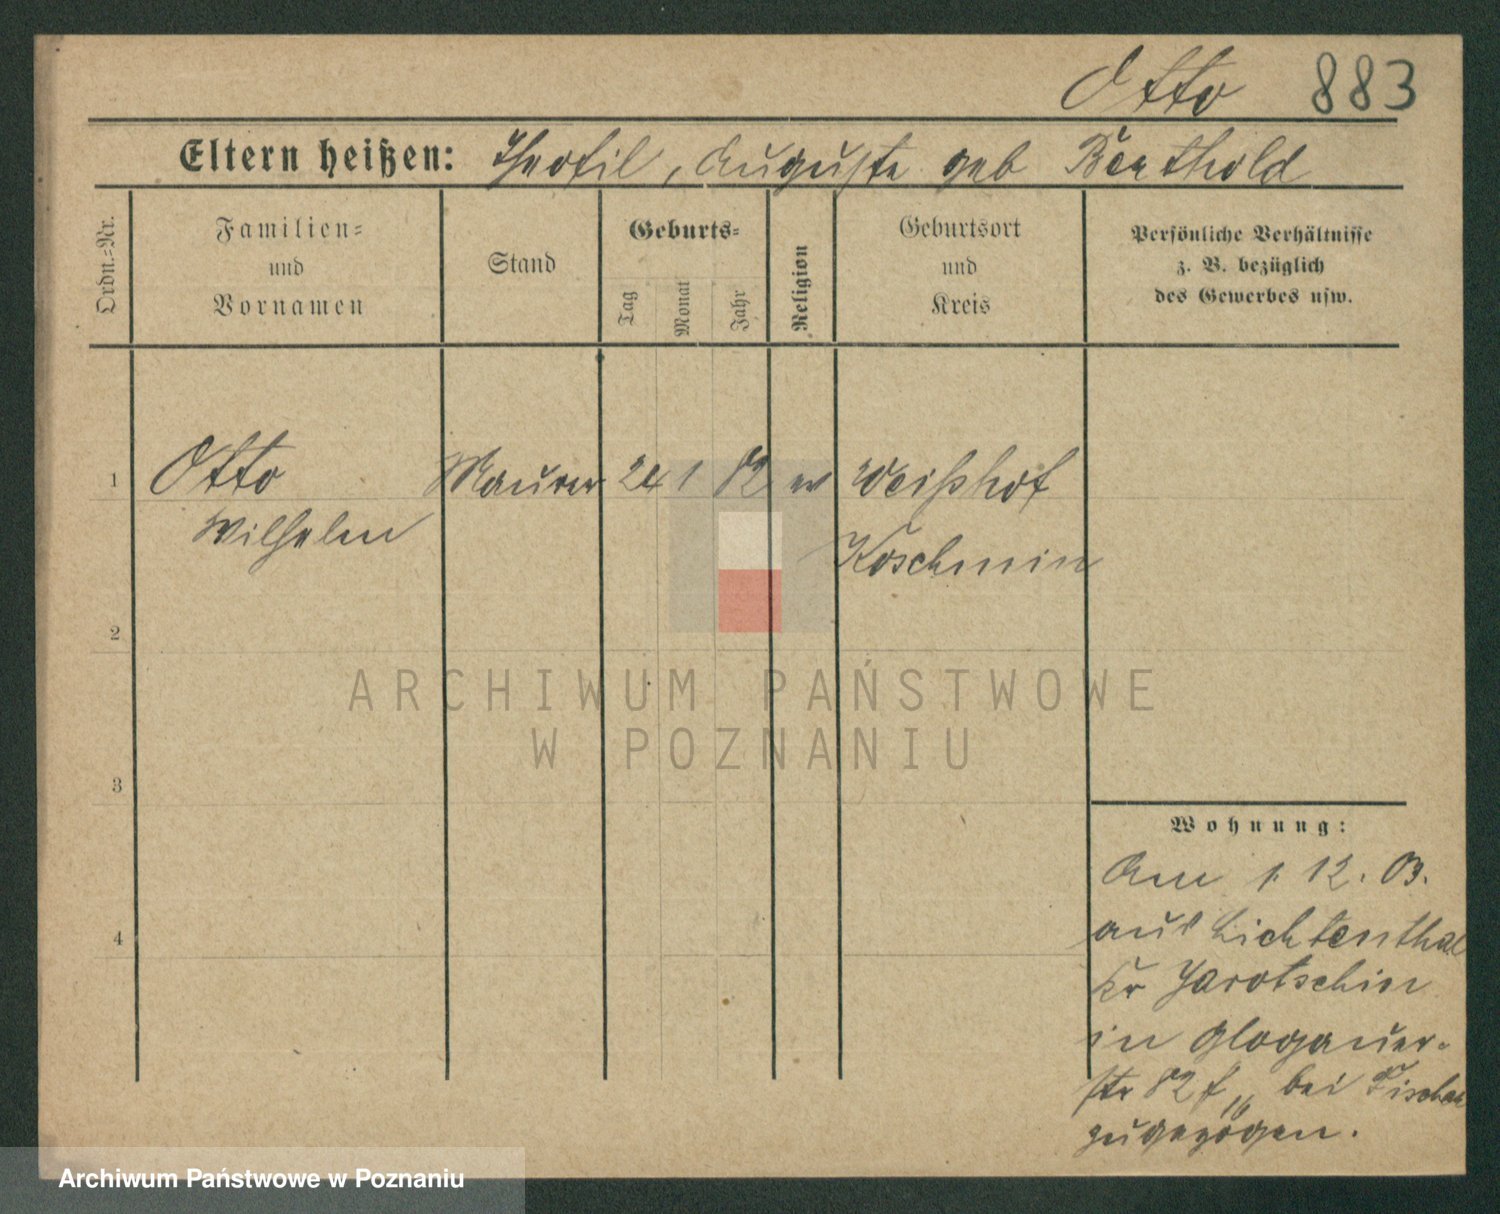 Otto 883
Eltern heißen: Theofil, Auguste geb Berthold
Ordn.=Nr.
Familien=
und
Vornamen
Stand
Geburts=
Tag
Monat
Jahr
Religion
Geburtsort
und
Kreis
Persönliche Verhältnisse
z. B. bezüglich
des Gewerbes usw.
1 Otto Maurer 24 1 82 ev Weißhof
Wilhelm Koschmin
2
ARCHIWUM PAŃSTWOWE
W POZNANIU
3
Wohnung:
Am 1. 12. 03.
aus Lichtenthal
4
Kr Jarotschin
in Glogauer-
str 82 f bei Fischer
zugezogen.
Archiwum Państwowe w Poznaniu